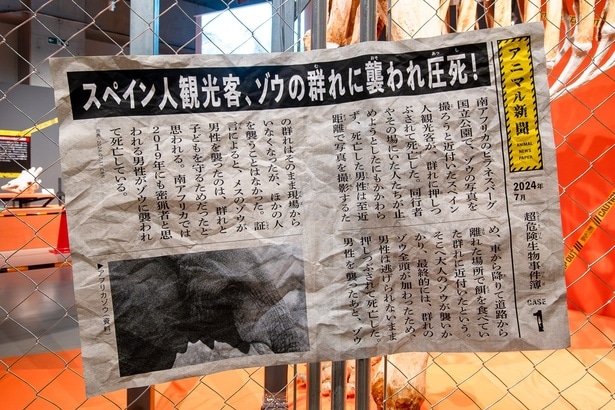 スペイン人観光客、ゾウの群れに襲われ圧死！
アニマル新聞
ANIMAL NEWS PAPER
2024年7月
超危険生物事件簿
CASE 1
南アフリカのピラネスバーグ
国立公園で、ゾウの写真を
撮ろうと近付いたスペイン
人観光客が、群れに押しつ
ぶされて死亡した。同行者
やその場にいた人たちが止
めようとしたにもかかわら
ず、死亡した男性は至近
距離で写真を撮影するた
め、車から降りて道路から
離れた場所で餌を食べてい
た群れに近付いたという。
そこへ大人のゾウが襲いか
かり、最終的には、群れの
ゾウ全頭が加わったため、
男性は逃げられないまま
押しつぶされて死亡した。
男性を襲ったあと、ゾウ
の群れはそのまま現場から
いなくなったが、ほかの人
を襲うことはなかった。証
言によると、メスのゾウが
男性を襲ったのは、群れと
子どもを守るためだったと
思われる。南アフリカでは
2019年にも密猟者と思
われる男性がゾウに襲われ
て死亡している。
▶アフリカゾウ（資料）